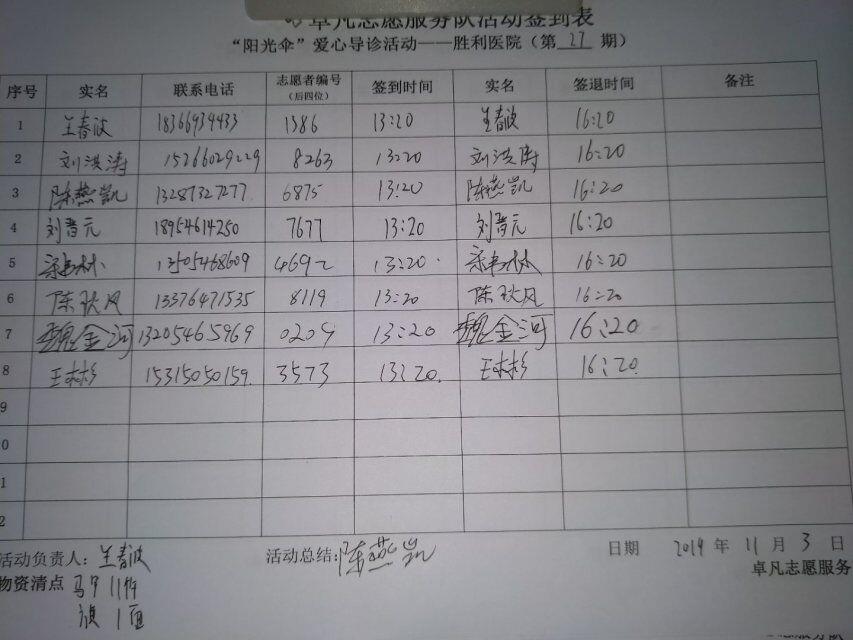 卓凡志愿服务队活动签到表
“阳光伞”爱心导诊活动——胜利医院（第 27 期）
序号 实名 联系电话 志愿者编号（后四位） 签到时间 实名 签退时间 备注
1 王春波 18366934433 1386 13:20 王春波 16:20
2 刘洪涛 15266029229 8263 13:20 刘洪涛 16:20
3 陈燕凯 13287327277 6875 13:20 陈燕凯 16:20
4 刘晋元 18954614250 7677 13:20 刘晋元 16:20
5 13505468609 4692 13:20 16:20
6 陈秋风 13376471535 8119 13:20 陈秋风 16:20
7 魏金河 13205465969 0209 13:20 魏金河 16:20
8 王彬彬 15315050159 3573 13:20 王彬彬 16:20
9
0
1
2
活动负责人：王春波 活动总结：陈燕凯 日期 2019 年 11 月 3 日
物资清点 马甲 11件 卓凡志愿服务
旗 1面